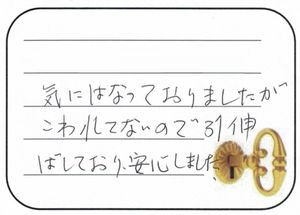 気にはなっておりましたが
こわれてないので引伸
ばしており、安心しました